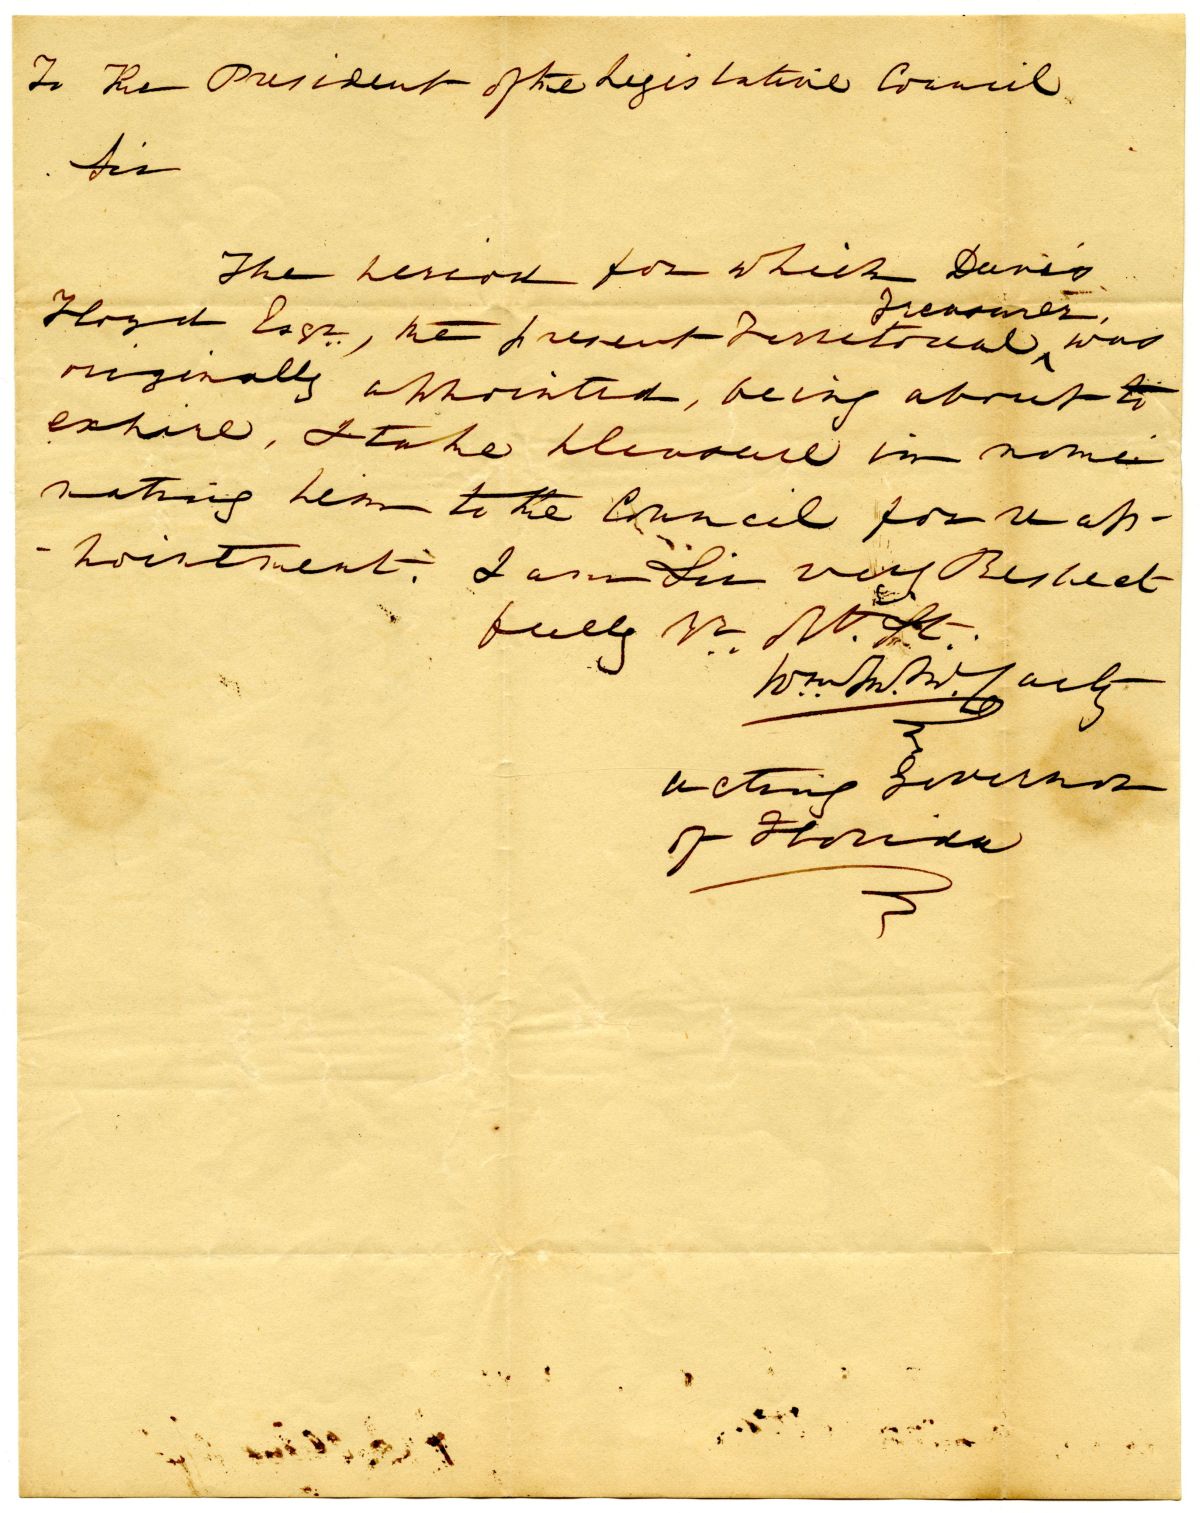 To the President of the Legislative Council
Sir
The period for which Davis
Treasurer,
Floyd Esqr., the present Territorial ^ was
originally appointed, being about to
expire, I take pleasure in nomi
nating him to the Council for re ap-
-pointment. I am Sir very Respect
fully Yr. Ob. St.
Wm. M. McCarty
acting Governor
of Florida